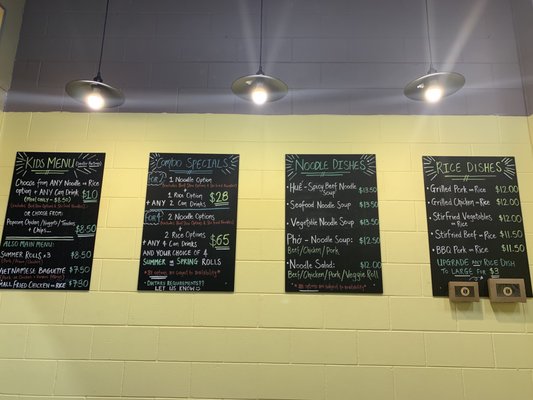 KIDS MENU
Choose from ANY Noodle or Rice
option + ANY Can Drink $10
(Meal only - $8.50)
OR CHOOSE FROM:
Popcorn Chicken/Nuggets/
+ Chips $8.50
ALSO MAIN MENU:
SUMMER ROLLS x3 $8.50
VIETNAMESE BAGUETTE $7.50
SMALL FRIED CHICKEN on RICE $7.50
COMBO SPECIALS
FOR 2
1 Noodle Option
1 Rice Option
+ ANY 2 Can Drinks
$28
FOR 4
2 Noodles Options
2 Rice Options
+ ANY 4 Can Drinks
$65
AND YOUR CHOICE OF 4
SUMMER or SPRING ROLLS
• DIETARY REQUIREMENTS??
LET US KNOW
NOODLE DISHES
• Huế - Spicy Beef Noodle Soup $13.50
• Seafood Noodle Soup $13.50
• Vegetable Noodle Soup $13.50
• Phở - Noodle Soup: $12.50
Beef/Chicken/Pork
• Noodle Salad: $12.00
Beef/Chicken/Pork/Veggie Roll
RICE DISHES
• Grilled Pork on Rice $12.00
• Grilled Chicken on Rice $12.00
• Stirfried Vegetables on Rice $12.00
• Stirfried Beef on Rice $11.50
• BBQ Pork on Rice $11.50
UPGRADE ANY RICE DISH
TO LARGE FOR $3